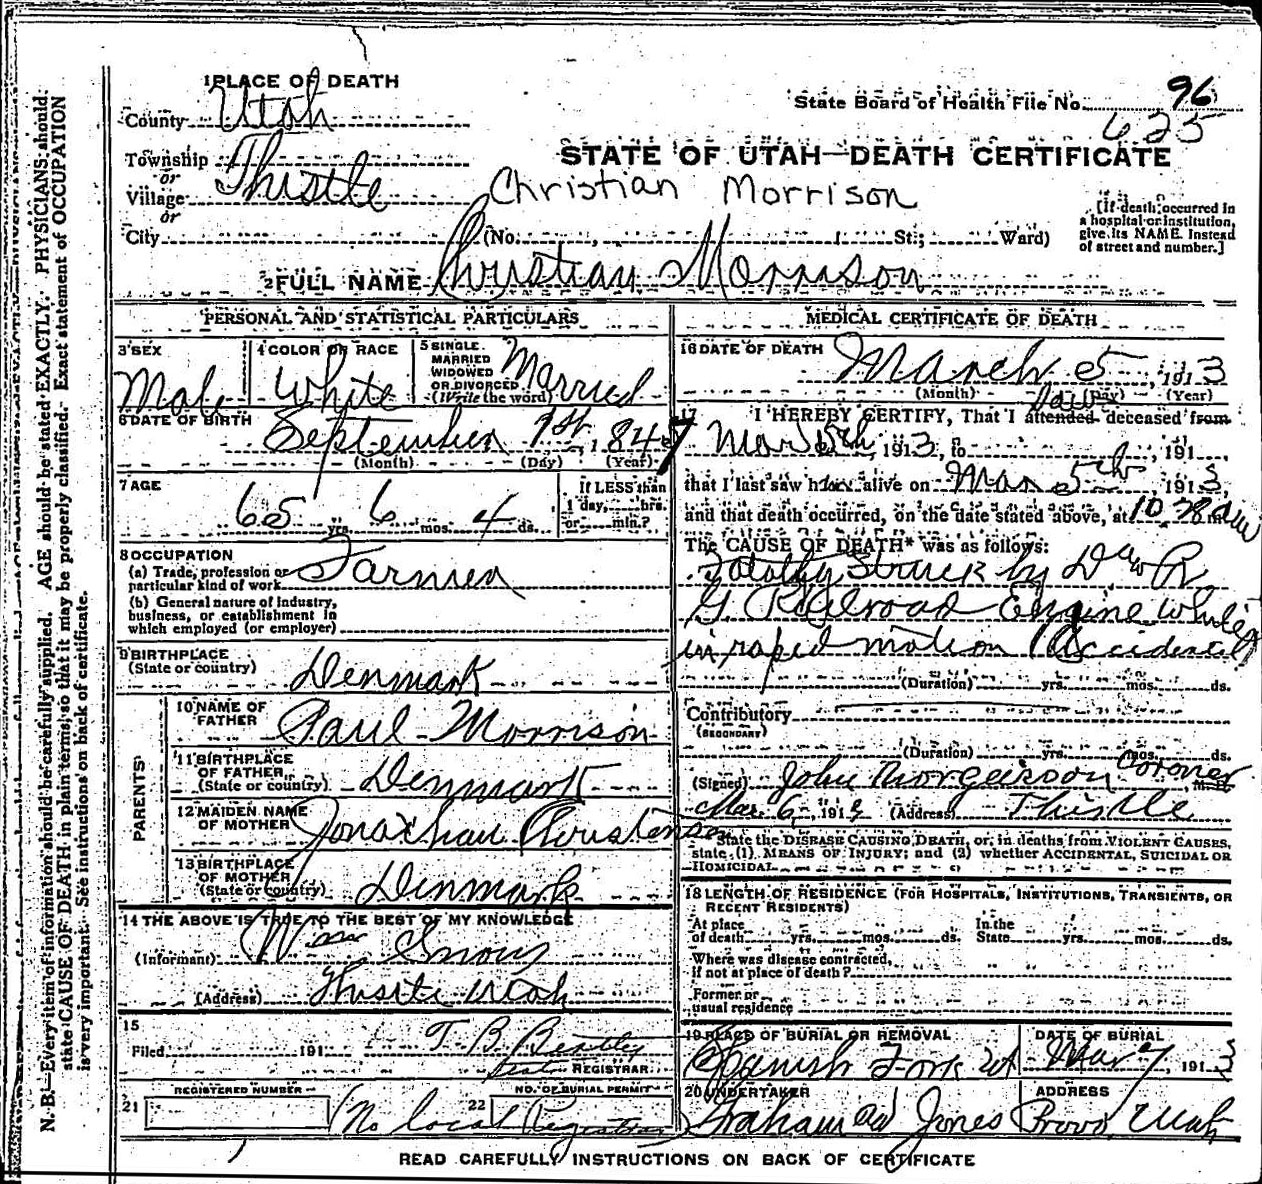 1 PLACE OF DEATH
County Utah
Township
or
Village Thistle
or
City (No. , St.; Ward)
State Board of Health File No. 96
625
STATE OF UTAH—DEATH CERTIFICATE
Christian Morrison
[If death occurred in
a hospital or institution,
give its NAME instead
of street and number.]
2 FULL NAME Christian Morrison
PERSONAL AND STATISTICAL PARTICULARS
3 SEX
Male
4 COLOR OR RACE
White
5 SINGLE
MARRIED
WIDOWED
OR DIVORCED
(Write the word)
Married
6 DATE OF BIRTH
September 1st, 1847
(Month) (Day) (Year)
7 AGE
65 yrs. 6 mos. 4 ds.
If LESS than
1 day, hrs.
or min.?
8 OCCUPATION
(a) Trade, profession or
particular kind of work Farmer
(b) General nature of industry,
business, or establishment in
which employed (or employer)
9 BIRTHPLACE
(State or country) Denmark
PARENTS
10 NAME OF
FATHER Paul Morrison
11 BIRTHPLACE
OF FATHER
(State or country) Denmark
12 MAIDEN NAME
OF MOTHER Jonathan Christenson
13 BIRTHPLACE
OF MOTHER
(State or country) Denmark
14 THE ABOVE IS TRUE TO THE BEST OF MY KNOWLEDGE
(Informant) Wm
(Address) Thistle Utah
15
Filed 191 T B Beatley
REGISTRAR
REGISTERED NUMBER
21
NO. OF BURIAL PERMIT
22
No local Registrar
MEDICAL CERTIFICATE OF DEATH
16 DATE OF DEATH
March 5, 1913
(Month) (Day) (Year)
17 I HEREBY CERTIFY, That I attended saw deceased from
Mar 5th, 1913, to , 191
that I last saw h alive on Mar 5th 1913,
and that death occurred, on the date stated above, at 10 AM
The CAUSE OF DEATH* was as follows:
Fatally Struck by D & R
G Railroad Engine while
in rapid motion Accidental
(Duration) yrs. mos. ds.
Contributory
(SECONDARY)
(Duration) yrs. mos. ds.
(Signed) John Coroner M. D.
Mar 6, 191 (Address) Thistle
*State the DISEASE CAUSING DEATH, or, in deaths from VIOLENT CAUSES,
state (1) MEANS OF INJURY; and (2) whether ACCIDENTAL, SUICIDAL OR
HOMICIDAL.
18 LENGTH OF RESIDENCE (FOR HOSPITALS, INSTITUTIONS, TRANSIENTS, OR
RECENT RESIDENTS)
At place
of death yrs. mos. ds.
In the
State yrs. mos. ds.
Where was disease contracted,
if not at place of death?
Former or
usual residence
19 PLACE OF BURIAL OR REMOVAL
Spanish Fork Ut
DATE OF BURIAL
Mar 7, 1913
20 UNDERTAKER
Graham and Jones
ADDRESS
Provo, Utah
READ CAREFULLY INSTRUCTIONS ON BACK OF CERTIFICATE
N. B.—Every item of information should be carefully supplied. AGE should be stated EXACTLY. PHYSICIANS should
state CAUSE OF DEATH in plain terms, so that it may be properly classified. Exact statement of OCCUPATION
is very important. See instructions on back of certificate.